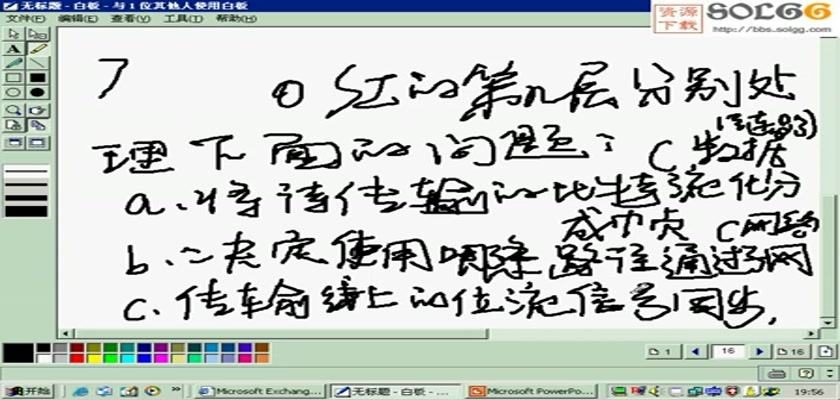 无标题 - 白板 - 与 1 位其他人使用白板
文件(F) 编辑(E) 查看(V) 工具(T) 帮助(H)
资源下载
SOLGG
http://bbs.solgg.com
7
OSI的第几层分别处
理下面的问题: (数据
a.将待传输的比特流化分
成帧 (网络
b.决定使用哪条路径通过网
c.传输线上的位流信号同步.
1
16
16
开始
Microsoft Exchang...
无标题 - 白板 - ...
Microsoft PowerPo...
19:56